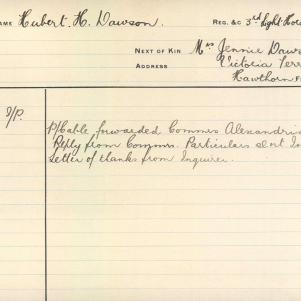 NAME Hubert. H. Dawson.
REG. &C 3rd Light Hors
NEXT OF KIN Mrs Jennie Daws
ADDRESS Victoria Terr
Hawthorn
I/P.
P/Cable forwarded Commrs Alexandria
Reply from Commrs. Particulars sent In
Letter of thanks from Inquirer.